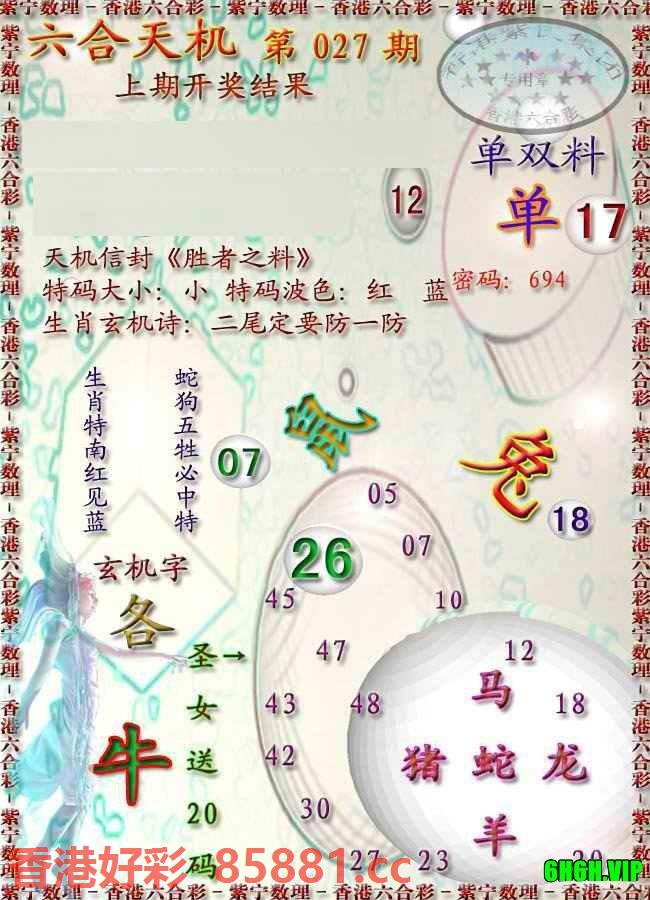 紫宁数理－香港六合彩－紫宁数理－香港六合彩－紫宁数理－香港六合彩
六合天机 第 027 期
上期开奖结果
专用章
香港六合彩
单双料
12
单 17
天机信封《胜者之料》
特码大小：小 特码波色：红 蓝
密码：694
生肖玄机诗：二尾定要防一防
生肖特南红见蓝
蛇狗五牲必中特
07
鼠
兔
18
05
26
07
45
10
玄机字
各
圣→
女
送
20
码
牛
47
12
43
48
18
42
30
27
23
20
马
猪 蛇 龙
羊
香港好彩 85881.cc
6H6H.VIP
紫宁数理－香港六合彩－紫宁数理－香港六合彩－紫宁数理－香港六合彩